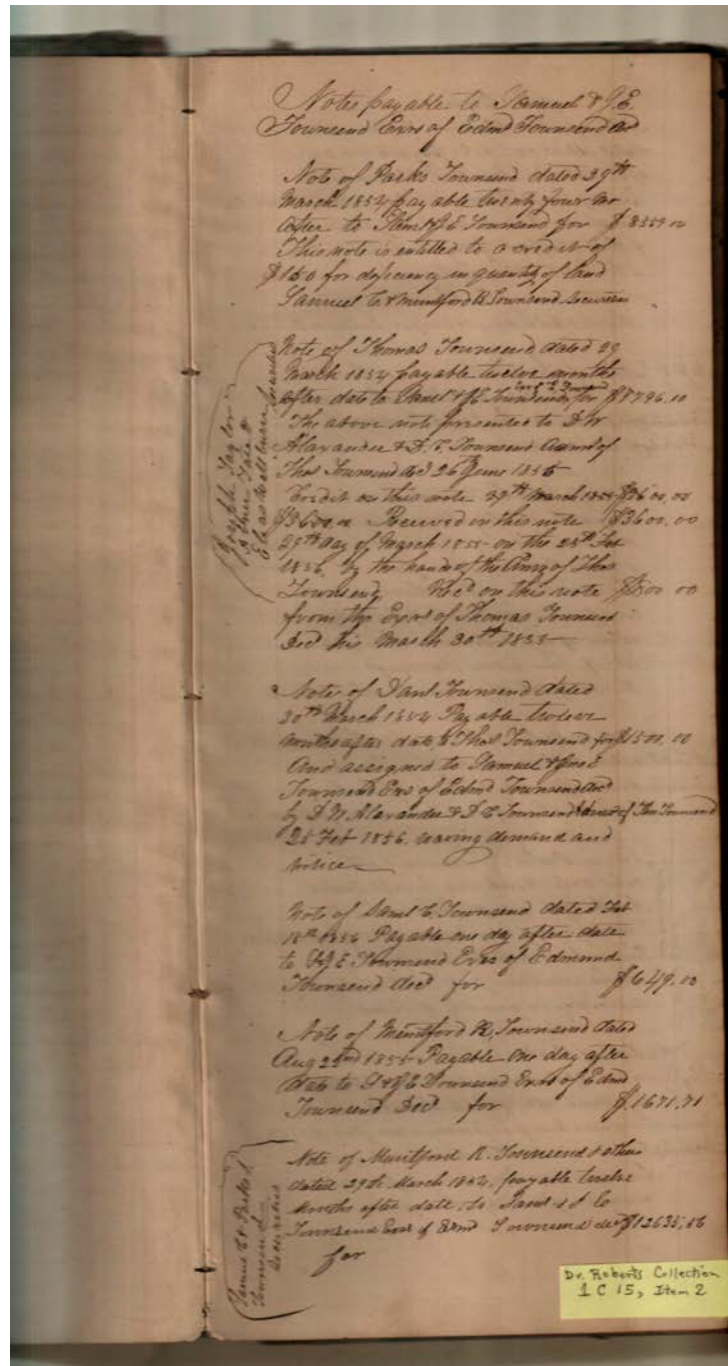 Notes payable to Samuel & J.E.
Townsend Exrs of Edmd Townsend decd
Note of Parks Townsend dated 29th
March 1854 payable twenty four mo
after to Saml & J E Townsend for $8559.00
This note is entitled to a credit of
$150 for deficiency in quantity of land
Samuel C & Muntford R. Townsend securities
Note of Thomas Townsend dated 29
March 1854 payable twelve months
after date to Saml & J E Townsend for $8796.00
The above note presented to D W
Alexander & D. C. Townsend Admrs of
Thos Townsend decd 26 June 1856
Credit on this note 29th March 1855 $3600.00
$3600.00 Received on this note $3600.00
29th day of March 1855 on the 25th Feb
1856, by the hands of the Admrs of Thos
Townsend Recd on this note 00
from the Exrs of Thomas Townsend
Decd this March 30th 1855
Joseph Taylor
Note of Danl Townsend dated
20th March 1854 Payable twelve
months after date to Thos Townsend for $1500.00
And assigned to Samuel &
Townsend Exrs of Edmd Townsend decd
by D. W. Alexander & D C Townsend of Thos Townsend
25 Feb 1856. waving demand and
notice
Note of Saml C Townsend dated Feb
18th 1856 Payable one day after date
to S & J E Townsend Exrs of Edmund
Townsend decd for $649.00
Note of Muntford R. Townsend dated
Aug 22nd 1855 Payable One day after
date to S & J E Townsend Exrs of Edmd
Townsend Decd for $1671.71
Note of Muntford R. Townsend & other
dated 29th March 1854, payable twelve
Months after date to Saml & J E
Townsend Exrs of Edmd Townsend decd $12635.56
for
Samuel C & Parks
Townsend
Securities
Dr. Roberts Collection
1 C 15, Item 2